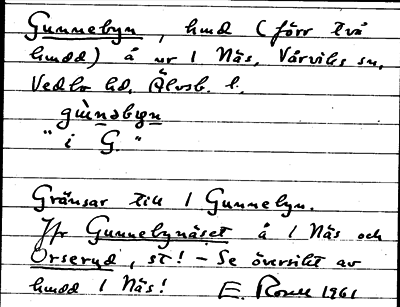 Gunnebyn, hmd (förr två
hmdd) å ur 1 Näs, Vårviks sn,
Vedbo hd, Älvsb. l.
gùnəbyn
" i G. "
Gränsar till 1 Gunnebyn.
Jfr Gunnebynäset å 1 Näs och
Orseryd, st! - Se översikt av
hmdd 1 Näs! E. 1961